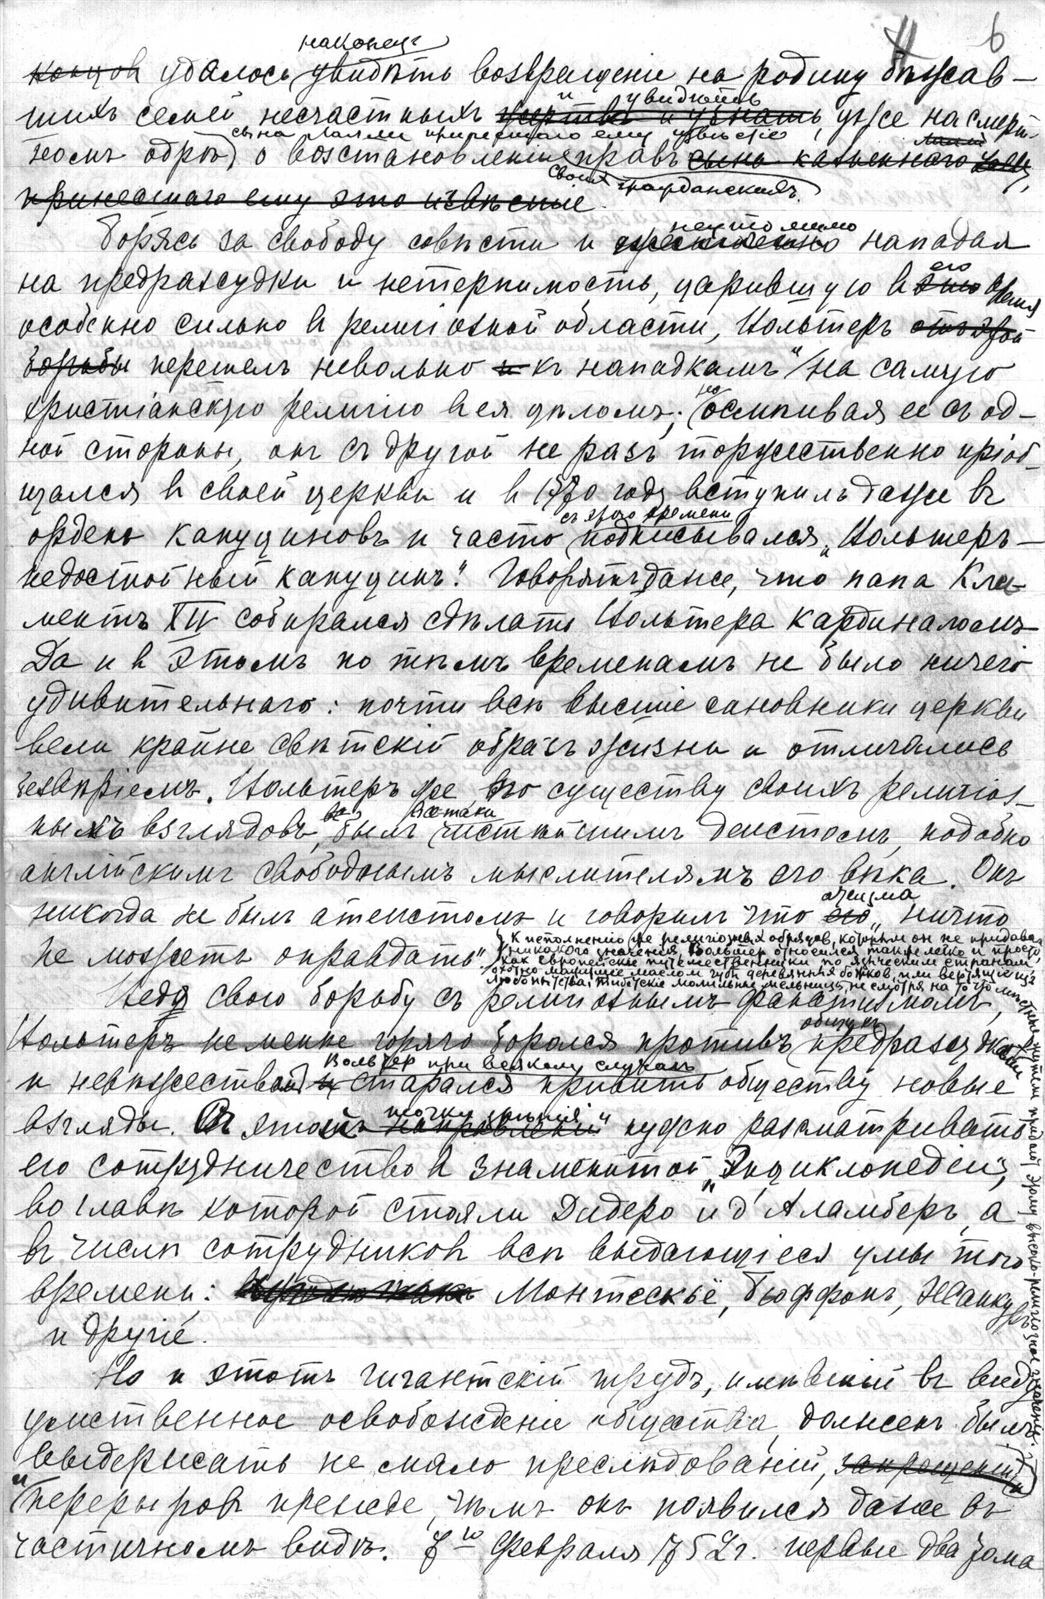 6
наконецъ
концов удалось увидѣть возвращеніе на родину бѣжав-
шихъ семей несчастныхъ жертвъ и узнать, уже на смерт-
и увидѣть
номъ одрѣ, о возстановленіи правъ сына казненнаго
сына Лалли принесшаго ему извѣстіе
своихъ гражданскихъ.
принесшаго ему это извѣстіе.
Борясь за свободу совѣсти и неутомимо нападая
на предразсудки и нетерпимость, царившую въ его время
особенно сильно въ религіозной области, Вольтеръ отъ этой
борьбы перешелъ невольно и къ нападкамъ на самую
христіанскую религію въ ея цѣломъ; но осмѣивая ее съ од-
ной стороны, онъ съ другой не разъ торжественно пріоб-
щался въ своей церкви и въ 1770 году вступилъ даже въ
съ этого времени
орденъ капуциновъ и часто подписывался „Вольтеръ—
недостойный капуцинъ". Говорятъ даже, что папа Кли-
ментъ XIV собирался сдѣлать Вольтера кардиналомъ.
Да и въ этомъ по тѣмъ временамъ не было ничего
удивительнаго: почти всѣ высшіе сановники церкви
вели крайне свѣтскій образъ жизни и отличались
безвѣріемъ. Вольтеръ же по существу своихъ религіоз-
ныхъ взглядовъ, былъ все-таки чистѣйшимъ деистомъ, подобно
англійскимъ свободнымъ мыслителямъ его вѣка. Онъ
никогда не былъ атеистомъ и говорилъ что атеизма „ничто
не можетъ оправдать".
Къ исполненію же религіозныхъ обрядовъ, которымъ он не придавал
никакого значения, Вольтер относился так же легко и просто,
как европейские путешественники по языческим странам,
охотно мажущие маслом губы деревянных божков, или вертящие из
любопытства тибетские молитвенные мельницы, не смотря на то что
придают этому высоко-религиозное значение.
Ведя свою борьбу съ религіознымъ фанатизмомъ,
Вольтеръ не менѣе горячо боролся противъ общихъ предразсудковъ
Вольтер при всяком случае
и невѣжества и старался привить обществу новые
взгляды. Съ этой точки зрѣнія нужно разсматривать
его сотрудничество въ знаменитой „Энциклопедіи",
во главѣ которой стояли Дидеро и д'Аламберъ, а
въ числѣ сотрудниковъ всѣ выдающіеся умы того
времени: Монтескье, Бюффонъ, Жанкуръ
и другіе.
Но и этотъ гигантскій трудъ, имѣвшій въ виду
умственное освобожденіе общества, долженъ былъ
выдержать не мало преслѣдованій, запрещеній и
перерывовъ прежде, чѣмъ онъ появился даже въ
частичномъ видѣ. 7го Февраля 1752 г. первые два тома